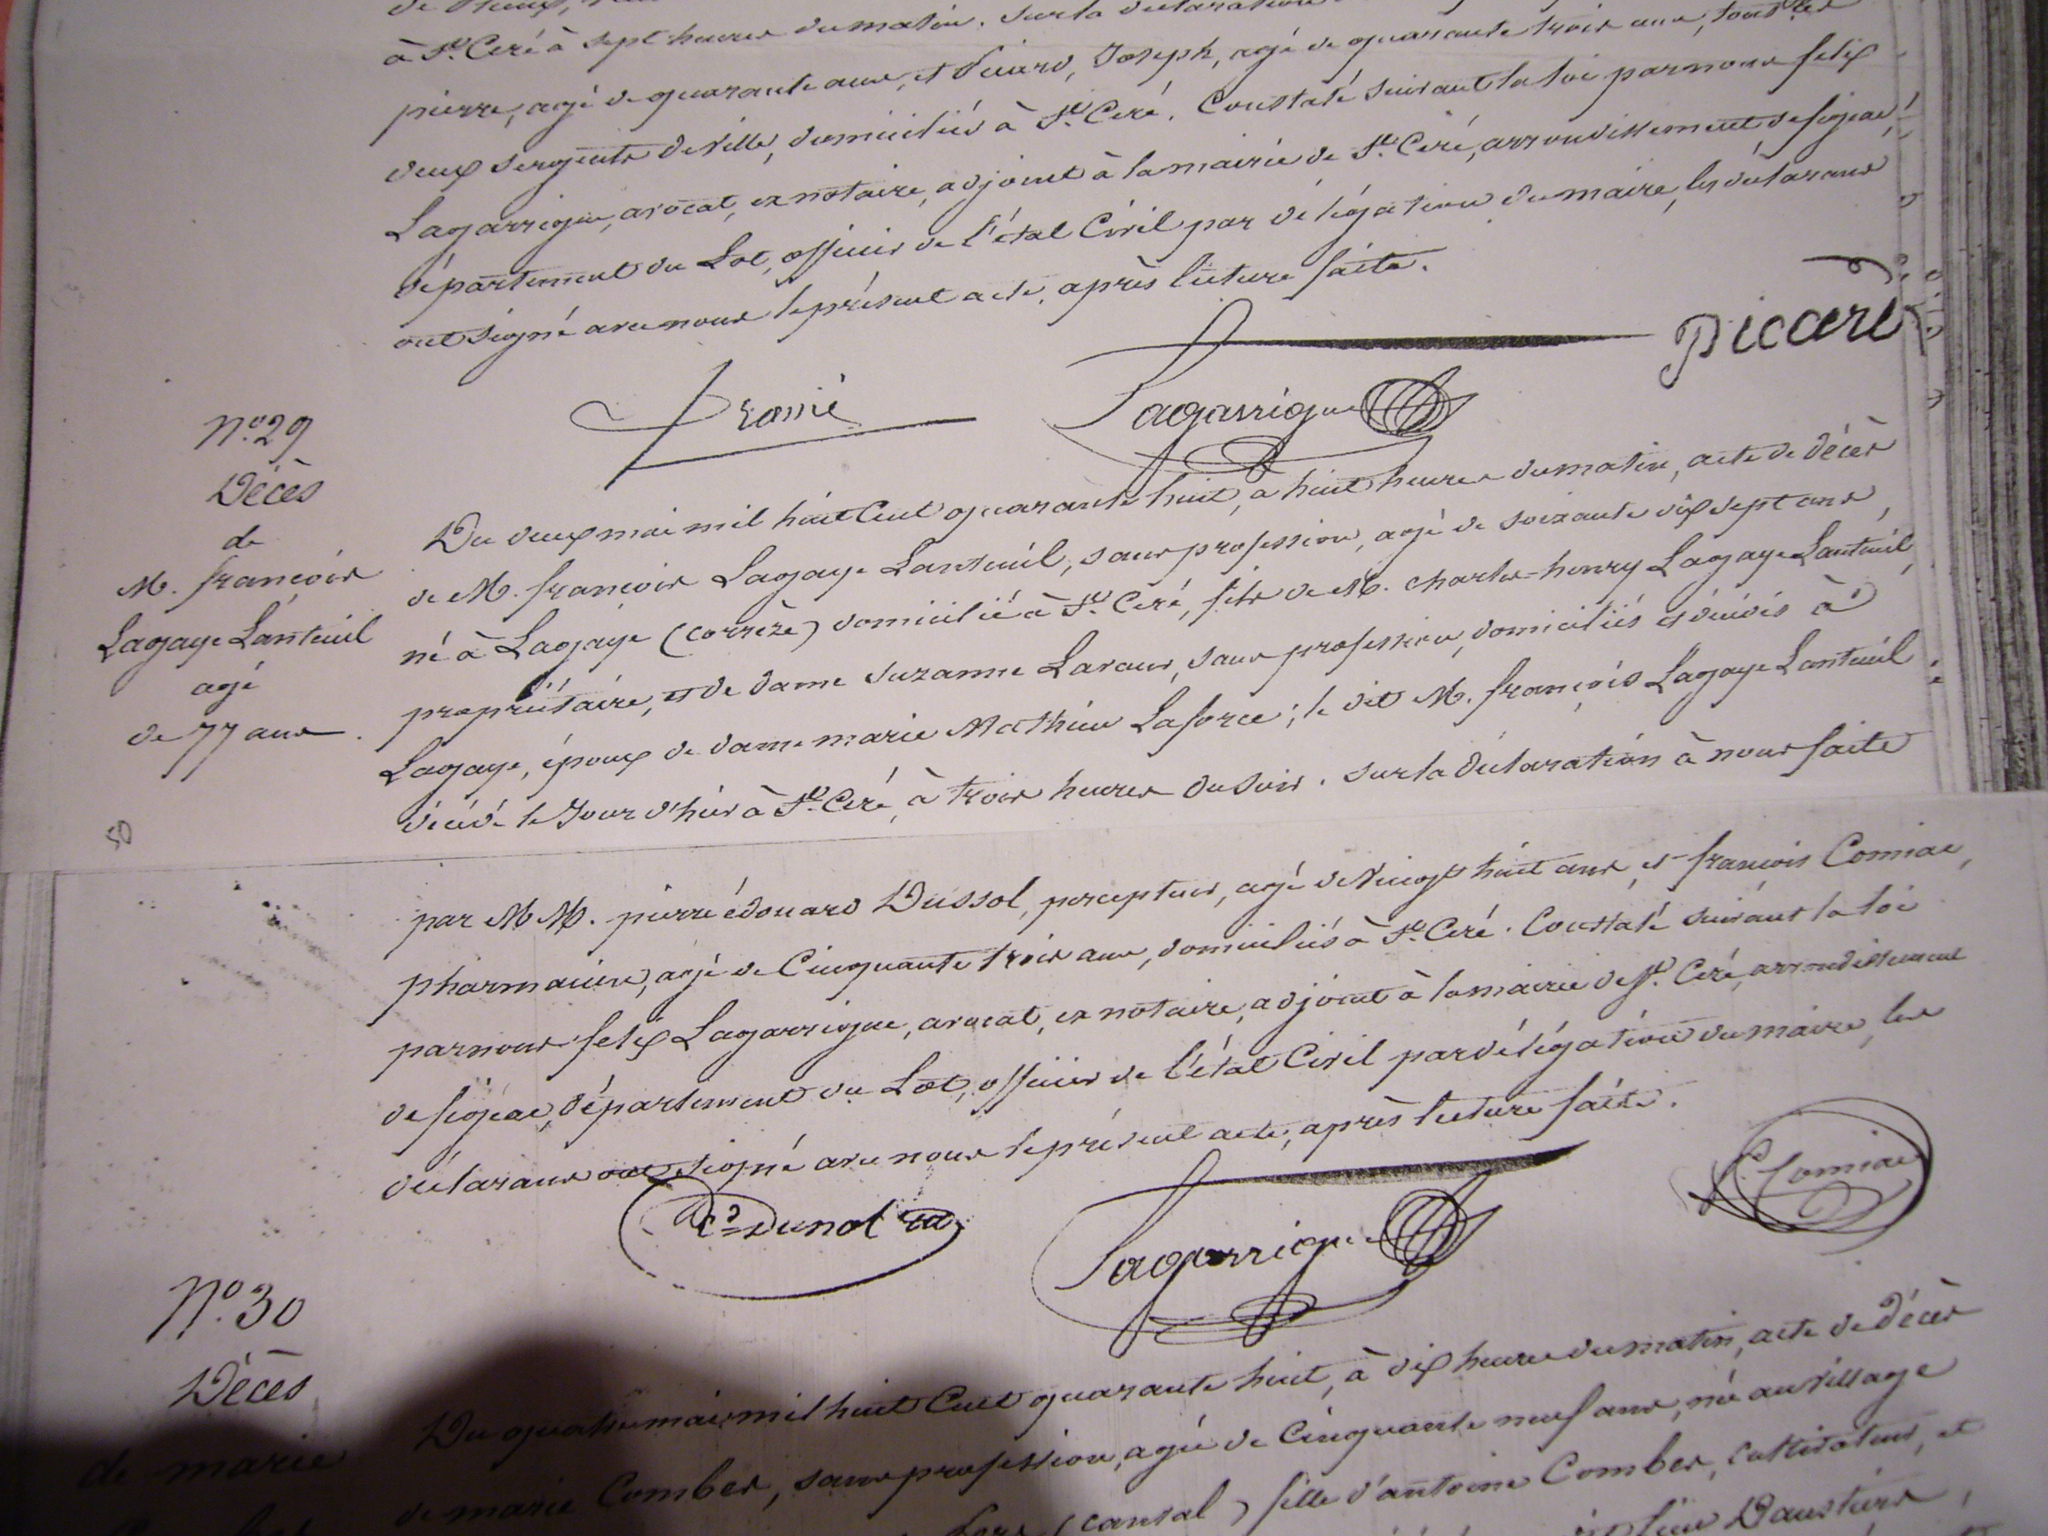 à St. Ceré à sept heures du matin. Sur la déclaration
pierre, agé de quarante ans, et Picard, Joseph, agé de quarante trois ans, tous les
deux sergents de Ville, domiciliés à St. Ceré. Constaté suivant la loi par nous felix
Lagarrigue, avocat, ex notaire, adjoint à la mairie de St. Ceré, arrondissement de figeac,
département du Lot, officier de l'état Civil par délégation du maire, les déclarans
ont signé avec nous le présent acte, après lecture faite.
Picard
Lagarrigue
N.º 29
Décès
de
M. françois
Lagaye Lanteuil
agé
de 77 ans.
Du deux mai mil huit Cent quarante huit, à huit heures du matin, acte de décès
de M. françois Lagaye Lanteuil, sans profession, agé de soixante dix sept ans,
né à Lagaye (Corrèze) domicilié à St. Ceré, fils de M. Charles-henry Lagaye Lanteuil,
propriétaire, et de dame Suzanne Lavaur, sans profession, domiciliés et décédés à
Lagaye, époux de dame marie Mathieu Laforce; le dit M. françois Lagaye Lanteuil
décédé le Jour d'hier à St. Ceré, à trois heures du soir. Sur la déclaration à nous faite
par MM. pierre édouard Dussol, percepteur, agé de Vingt huit ans, et françois Comiac,
pharmacien, agé de Cinquante trois ans, domiciliés à St. Ceré. Constaté suivant la loi
par nous felix Lagarrigue, avocat, ex notaire, adjoint à la mairie de St. Ceré, arrondissement
de figeac, département du Lot, officier de l'état Civil par délégation du maire, les
déclarans ont signé avec nous le présent acte, après lecture faite.
Lagarrigue
Comiac
N.º 30
Décès
de marie
Du quatre mai mil huit Cent quarante huit, à dix heures du matin, acte de décès
de marie Combes, sans profession, agée de Cinquante neuf ans, née au Village
(Cantal) fille d'antoine Combes, Cultivateur, et